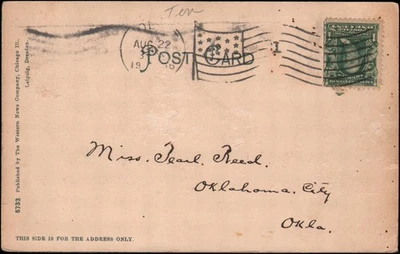 AUG 22
19
POST CARD
1
Miss. Pearl. Reed.
Oklahoma. City
Okla.
THIS SIDE IS FOR THE ADDRESS ONLY.
5733 Published by The Western News Company, Chicago Ill.
Leipzig, Dresden.